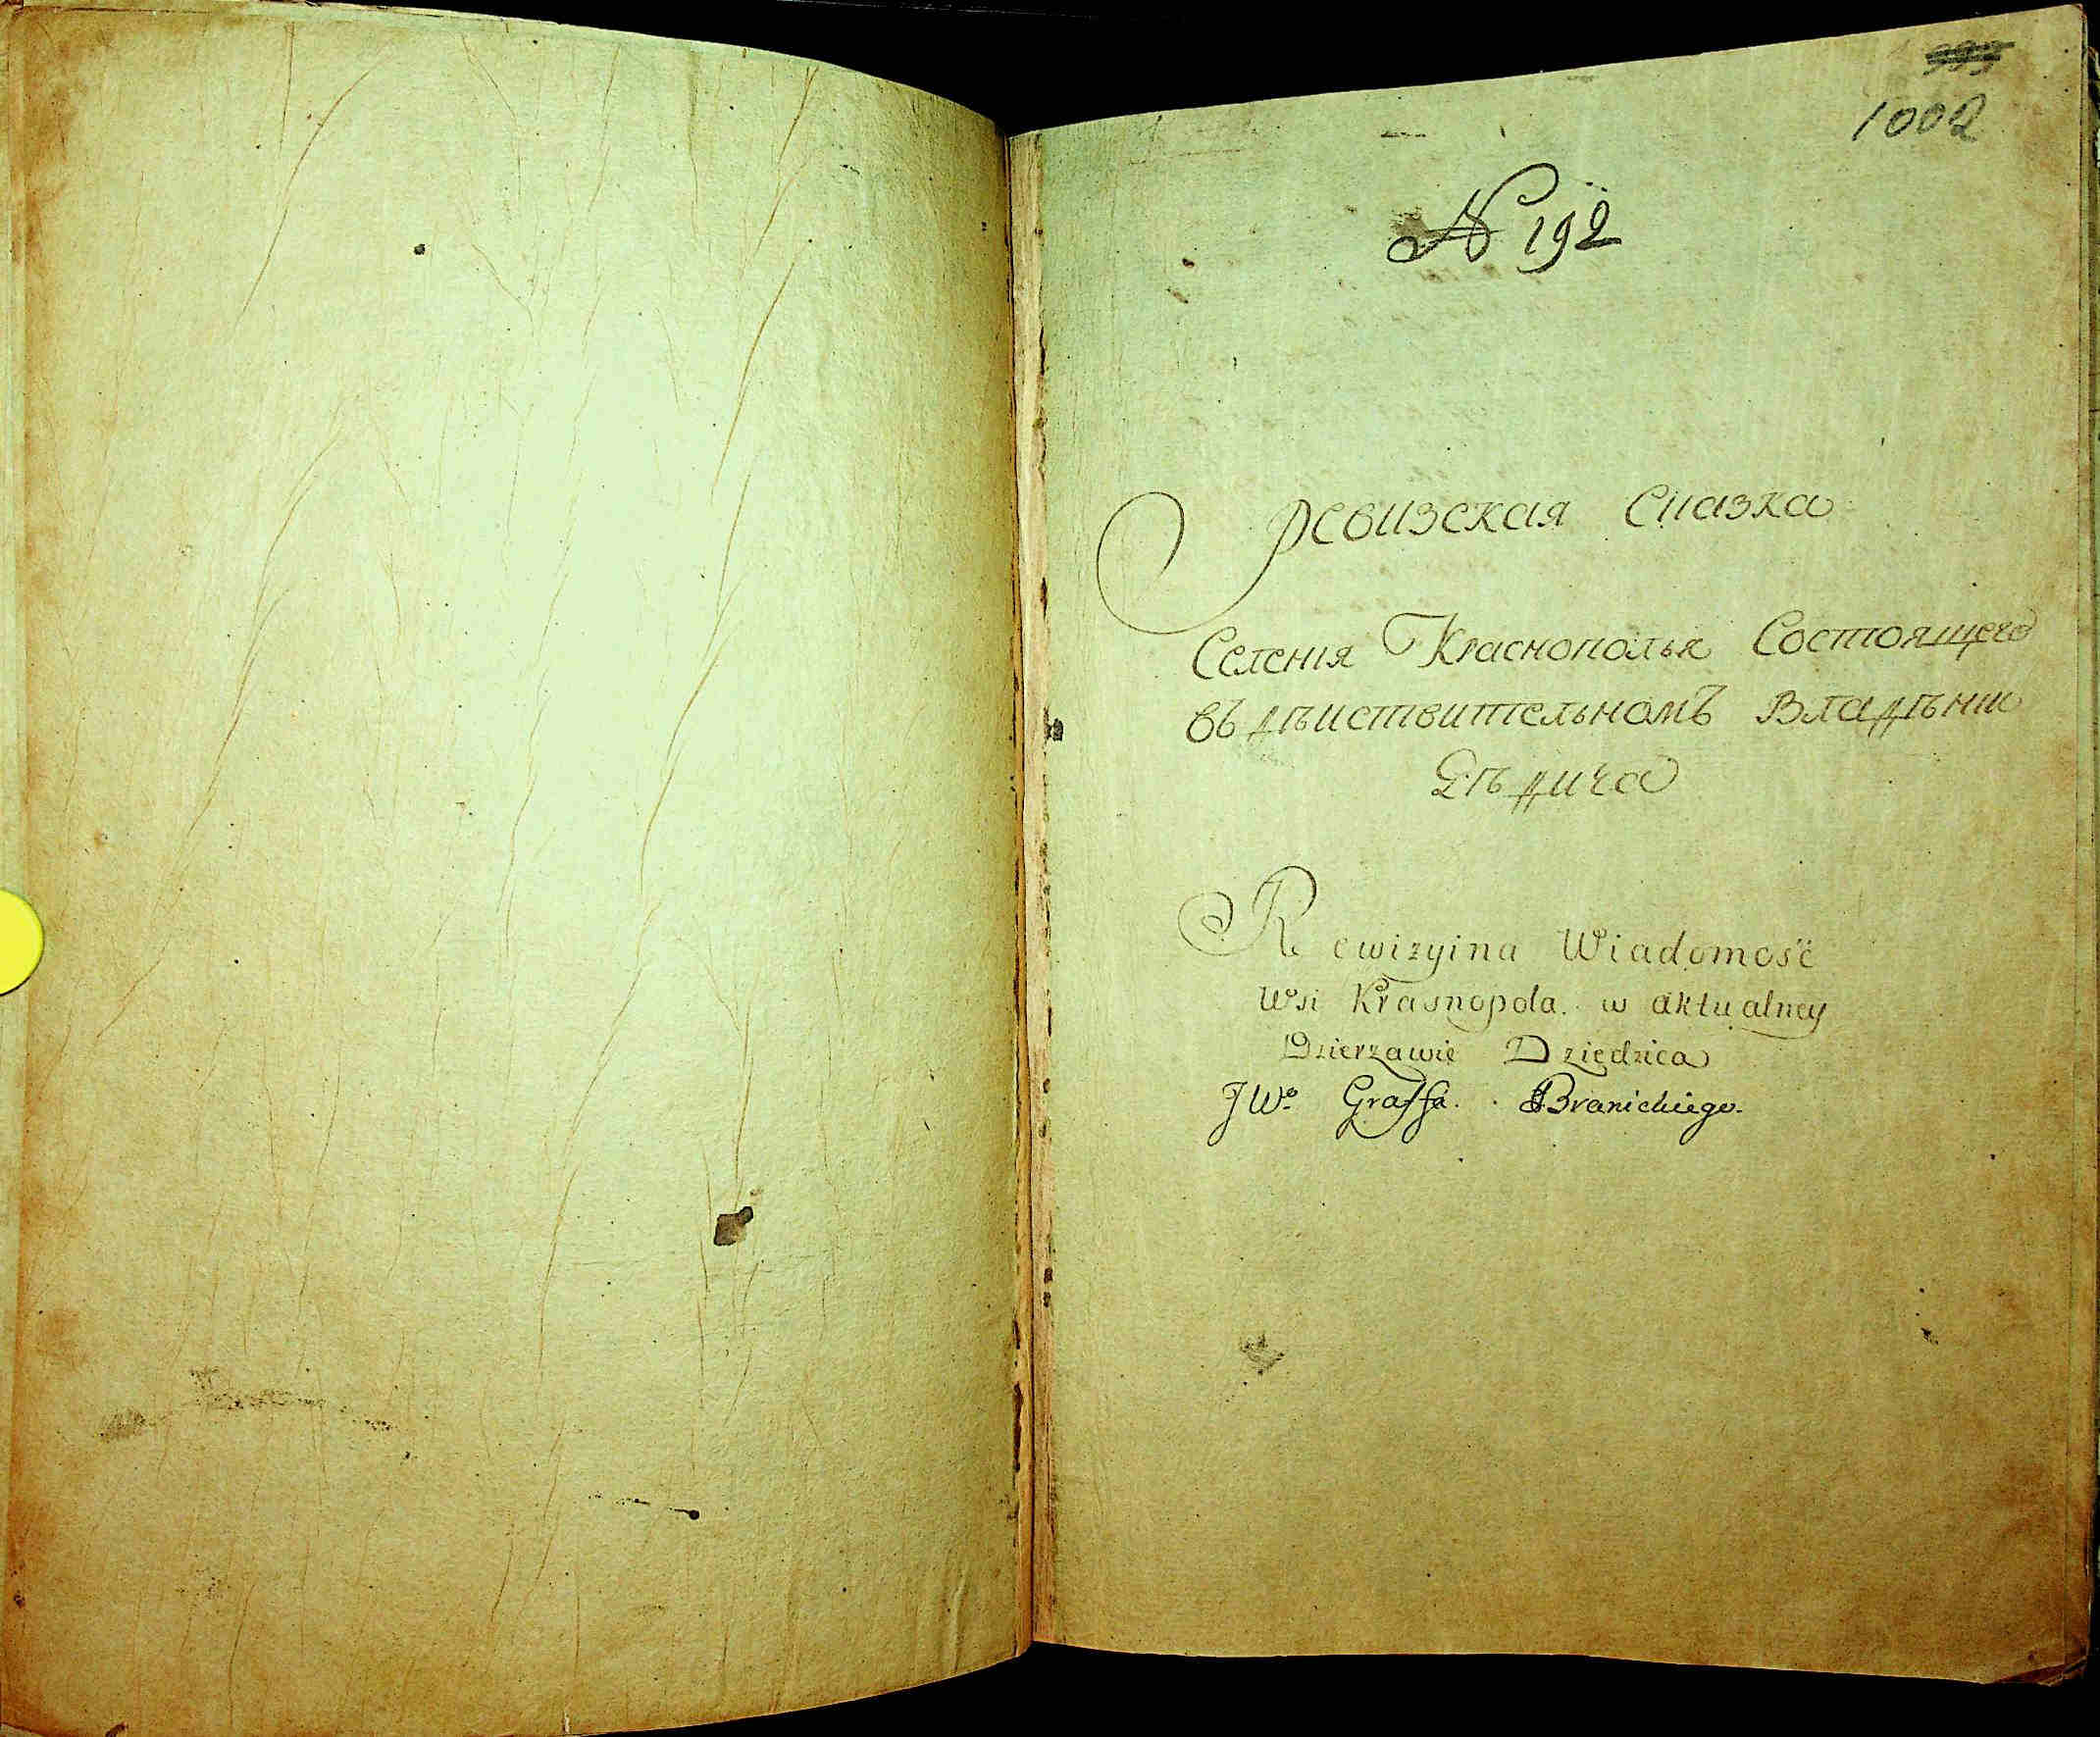 1002
N 192
Ревизская Сказка
Селенія Краснополья Состоящего
въ дѣиствительномъ Владѣнии
Дѣдича
Rewizyina Wiadomość
Wsi Krasnopola. w aktualney
Dzierzawie Dziedzica
JWo Graffa. Branickiego.